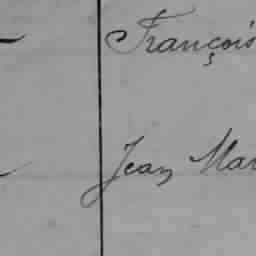 François
Jean Mar